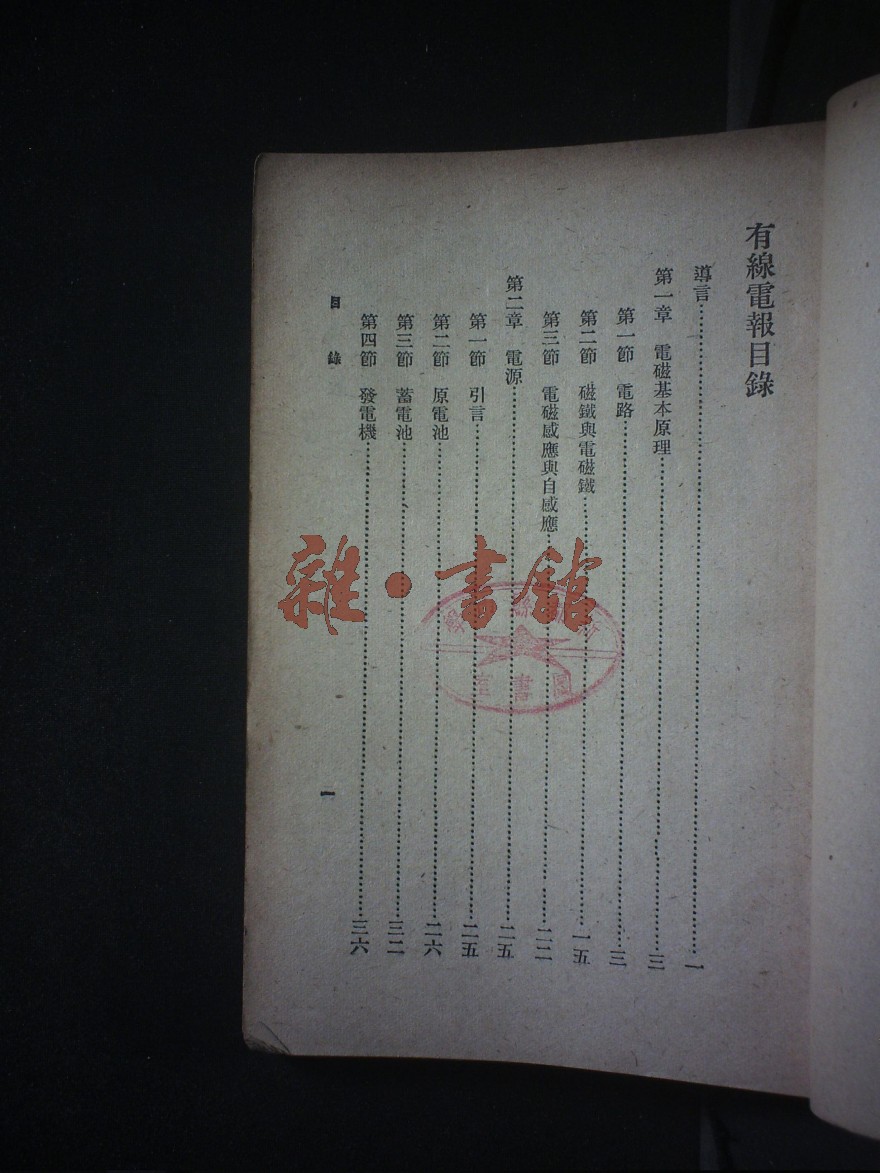 有線電報目錄
導言……一
第一章　電磁基本原理……三
第一節　電路……三
第二節　磁鐵與電磁鐵……一五
第三節　電磁感應與自感應……二二
第二章　電源……二五
第一節　引言……二五
第二節　原電池……二六
第三節　蓄電池……三二
第四節　發電機……三六
目錄
一
雜·書館
圖書室